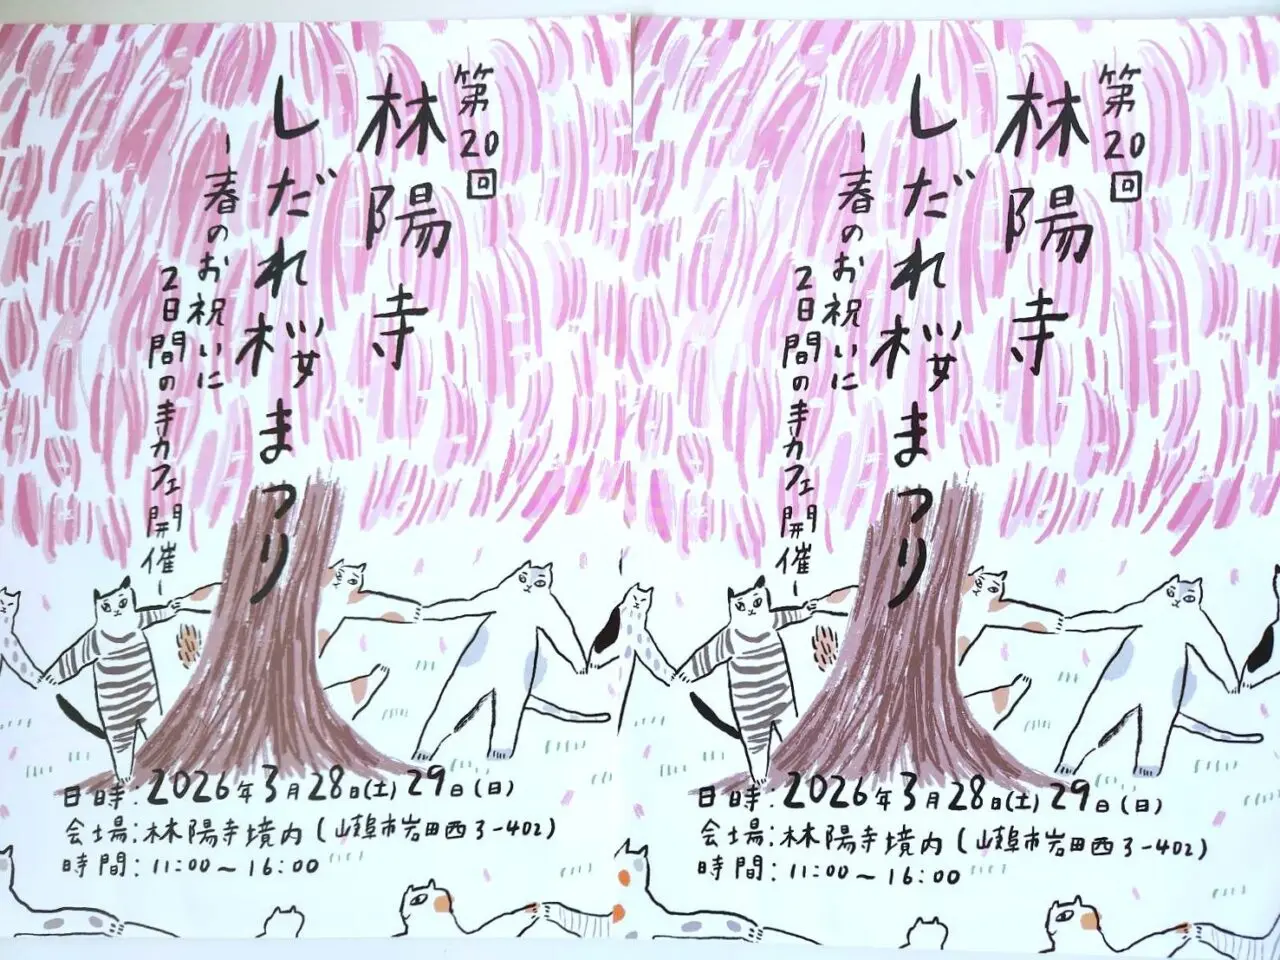 第20回
林陽寺
しだれ桜まつり
-春のお祝いに
2日間の寺カフェ開催-
日時:2026年3月28日(土)29日(日)
会場:林陽寺境内(岐阜市岩田西3-402)
時間:11:00~16:00
第20回
林陽寺
しだれ桜まつり
-春のお祝いに
2日間の寺カフェ開催-
日時:2026年3月28日(土)29日(日)
会場:林陽寺境内(岐阜市岩田西3-402)
時間:11:00~16:00